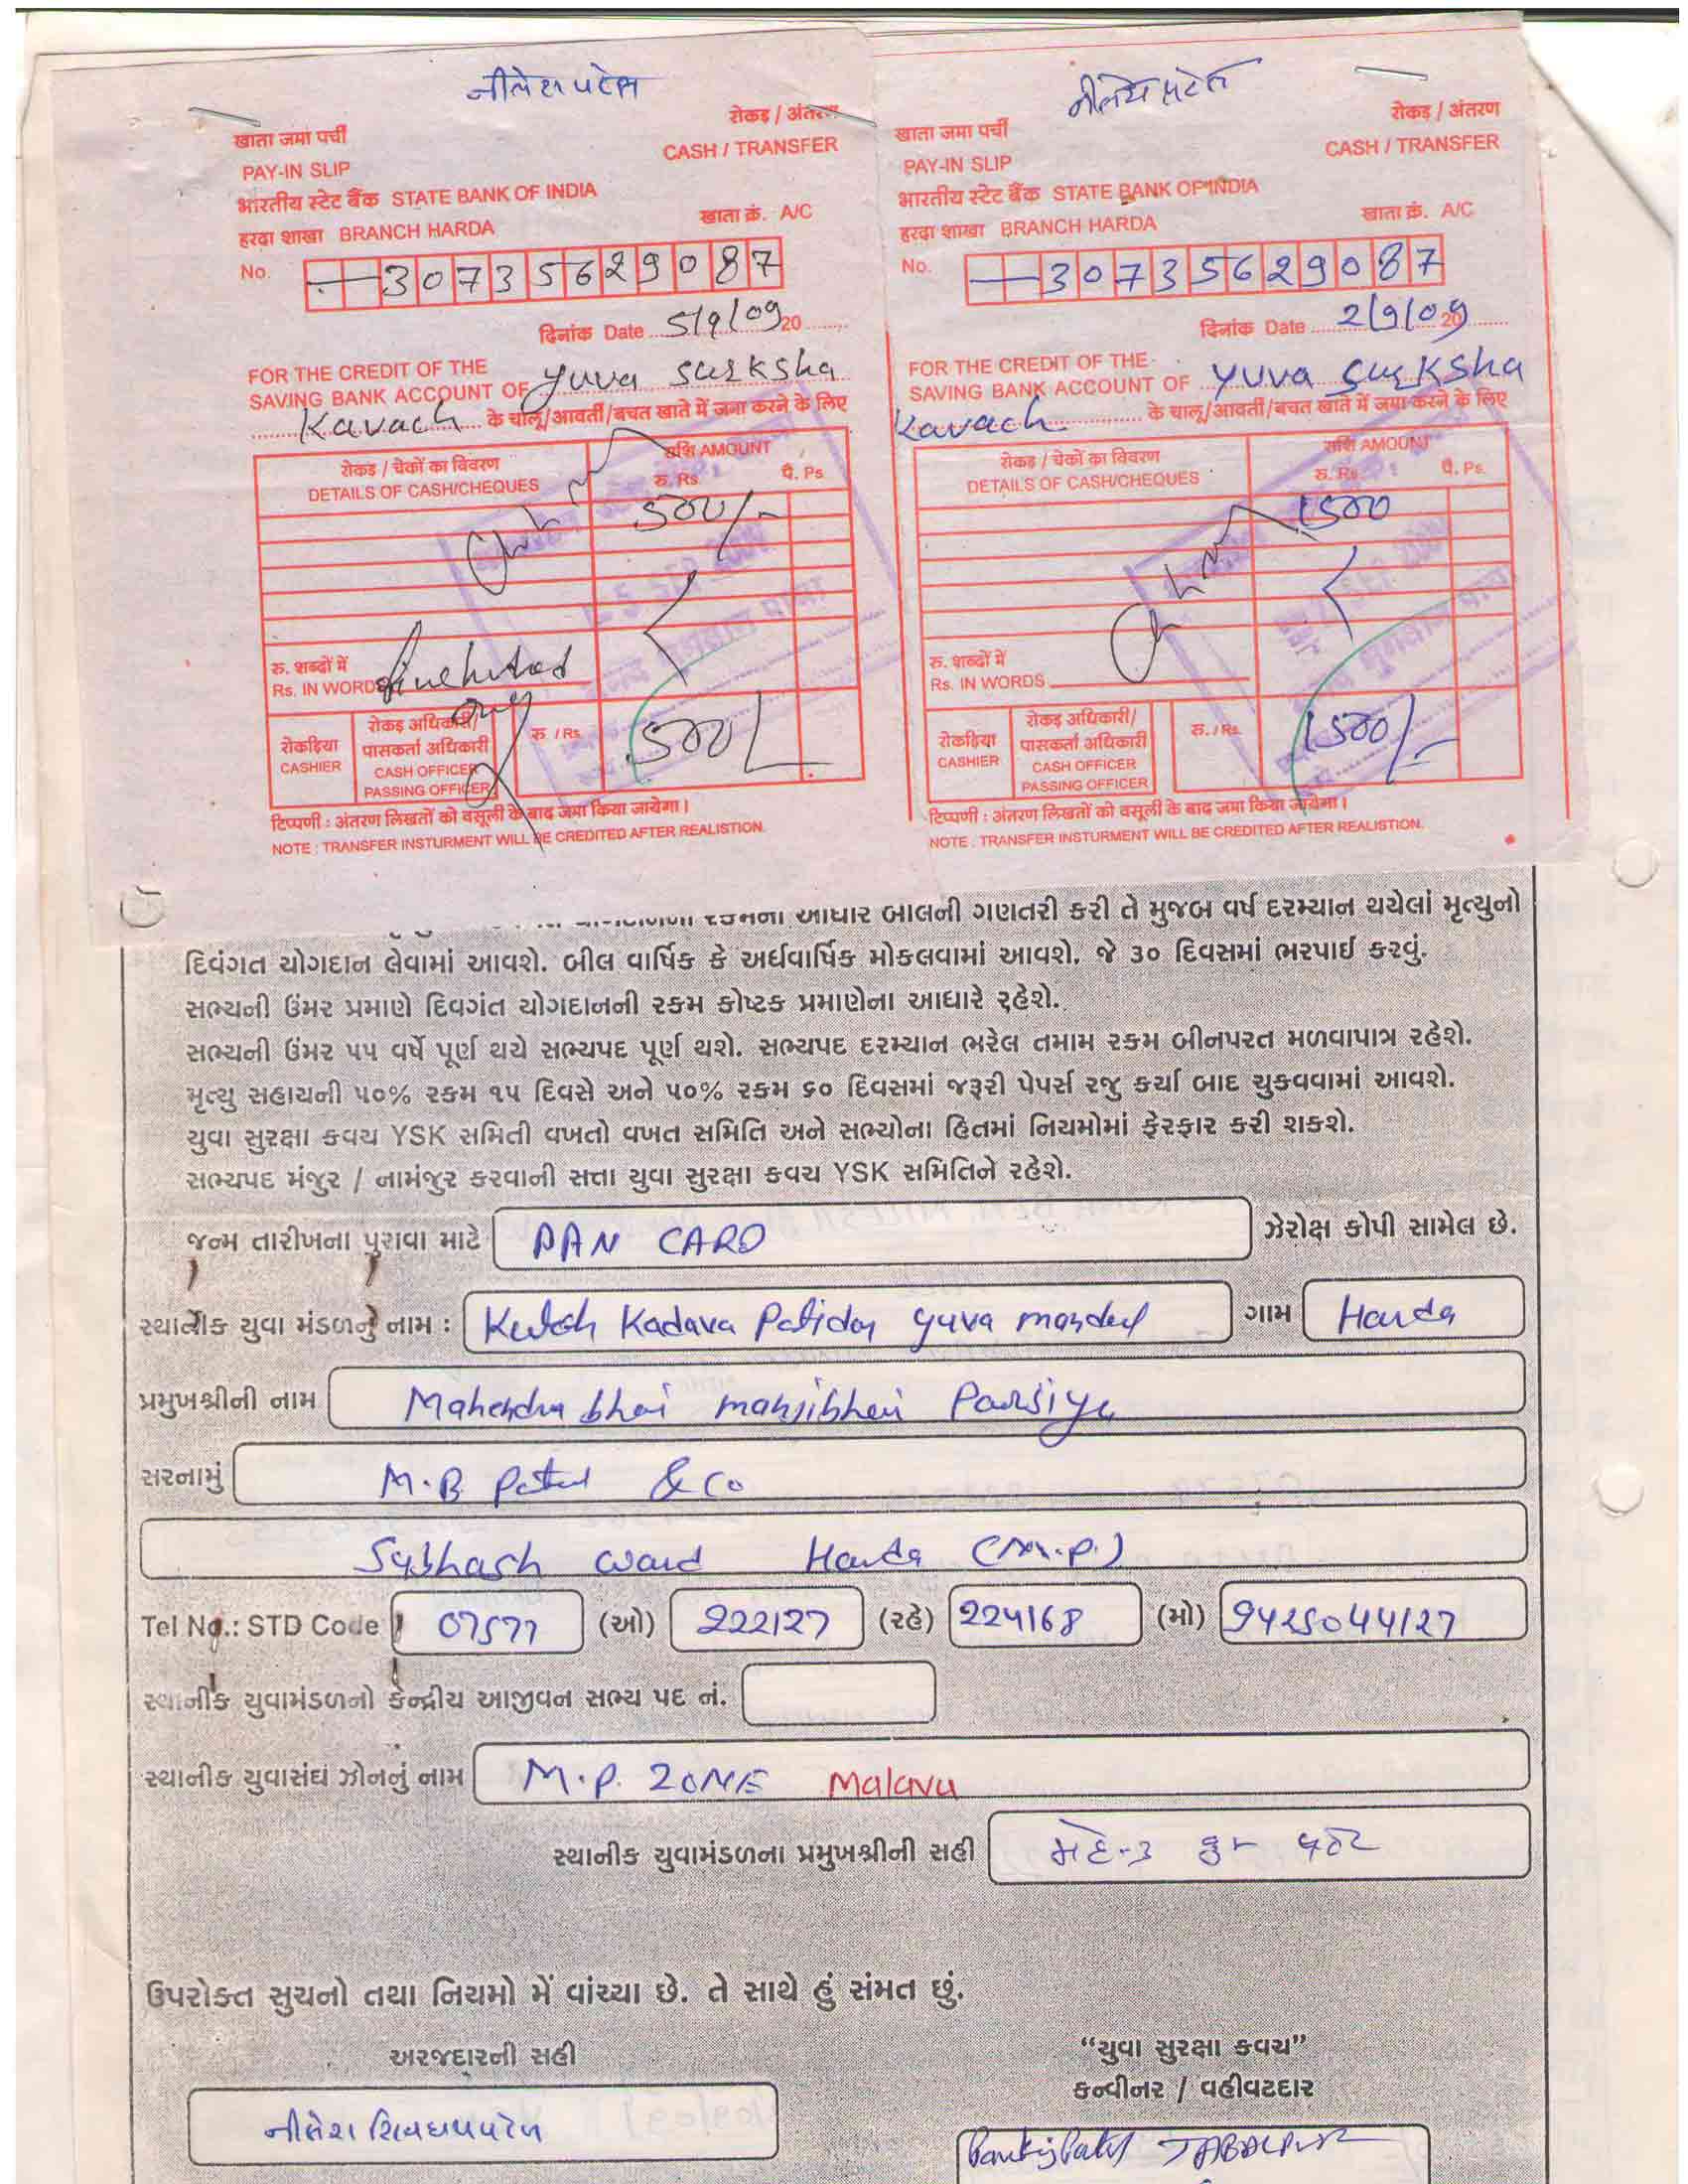 નીલેશ પટેલ
रोकड़ / अंतरण
खाता जमा पर्ची
CASH / TRANSFER
PAY-IN SLIP
भारतीय स्टेट बैंक STATE BANK OF INDIA
हरदा शाखा BRANCH HARDA
खाता क्रं. A/C
No. 30735629087
दिनांक Date 5/9/09 20
FOR THE CREDIT OF THE
SAVING BANK ACCOUNT OF yuva surksha
Kavach के चालू/आवर्ती/बचत खाते में जमा करने के लिए
रोकड / चेकों का विवरण
राशि AMOUNT
DETAILS OF CASH/CHEQUES
रु. Rs. पै. Ps.
500/-
रु. शब्दों में
Rs. IN WORDS
रोकड़िया
CASHIER
रोकड़ अधिकारी/
पासकर्ता अधिकारी
CASH OFFICER
PASSING OFFICER
रु. / Rs.
500/-
टिप्पणी : अंतरण लिखतों को वसूली के बाद जमा किया जायेगा।
NOTE : TRANSFER INSTURMENT WILL BE CREDITED AFTER REALISTION.
रोकड़ / अंतरण
खाता जमा पर्ची
CASH / TRANSFER
PAY-IN SLIP
भारतीय स्टेट बैंक STATE BANK OF INDIA
हरदा शाखा BRANCH HARDA
खाता क्रं. A/C
No. 30735629087
दिनांक Date 2/9/09 20
FOR THE CREDIT OF THE
SAVING BANK ACCOUNT OF yuva surksha
Kavach के चालू/आवर्ती/बचत खाते में जमा करने के लिए
रोकड / चेकों का विवरण
राशि AMOUNT
DETAILS OF CASH/CHEQUES
रु. Rs. पै. Ps.
1500
रु. शब्दों में
Rs. IN WORDS
रोकड़िया
CASHIER
रोकड़ अधिकारी/
पासकर्ता अधिकारी
CASH OFFICER
PASSING OFFICER
रु. / Rs.
1500/-
टिप्पणी : अंतरण लिखतों को वसूली के बाद जमा किया जायेगा।
NOTE : TRANSFER INSTURMENT WILL BE CREDITED AFTER REALISTION.
આધાર બાલની ગણતરી કરી તે મુજબ વર્ષ દરમ્યાન થયેલાં મૃત્યુનો
દિવંગત યોગદાન લેવામાં આવશે. બીલ વાર્ષિક કે અર્ધવાર્ષિક મોકલવામાં આવશે. જે ૩૦ દિવસમાં ભરપાઈ કરવું.
સભ્યની ઉંમર પ્રમાણે દિવગંત યોગદાનની રકમ કોષ્ટક પ્રમાણેના આધારે રહેશે.
સભ્યની ઉંમર ૫૫ વર્ષે પૂર્ણ થયે સભ્યપદ પૂર્ણ થશે. સભ્યપદ દરમ્યાન ભરેલ તમામ રકમ બીનપરત મળવાપાત્ર રહેશે.
મૃત્યુ સહાયની ૫૦% રકમ ૧૫ દિવસે અને ૫૦% રકમ ૬૦ દિવસમાં જરૂરી પેપર્સ રજુ કર્યા બાદ ચુકવવામાં આવશે.
યુવા સુરક્ષા કવચ YSK સમિતી વખતો વખત સમિતિ અને સભ્યોના હિતમાં નિયમોમાં ફેરફાર કરી શકશે.
સભ્યપદ મંજુર / નામંજુર કરવાની સત્તા યુવા સુરક્ષા કવચ YSK સમિતિને રહેશે.
જન્મ તારીખના પુરાવા માટે PAN CARD ઝેરોક્ષ કોપી સામેલ છે.
સ્થાનીક યુવા મંડળનું નામ : Kutch Kadava Patidar yuva mandal ગામ Harda
પ્રમુખશ્રીની નામ Mahendra bhai manjibhai Parsiya
સરનામું M.B. Patel & Co
Subhash ward Harda (M.P.)
Tel No.: STD Code 07577 (ઓ) 222127 (રહે) 224168 (મો) 9425044127
સ્થાનીક યુવામંડળનો કેન્દ્રીય આજીવન સભ્ય પદ નં.
સ્થાનીક યુવાસંઘ ઝોનનું નામ M.P. ZONE Malava
સ્થાનીક યુવામંડળના પ્રમુખશ્રીની સહી
ઉપરોક્ત સુચનો તથા નિયમો મેં વાંચ્યા છે. તે સાથે હું સંમત છું.
અરજદારની સહી
“યુવા સુરક્ષા કવચ”
કન્વીનર / વહીવટદાર
નીલેશ શિવદાસ પટેલ
Pankaj Patel JABALPUR